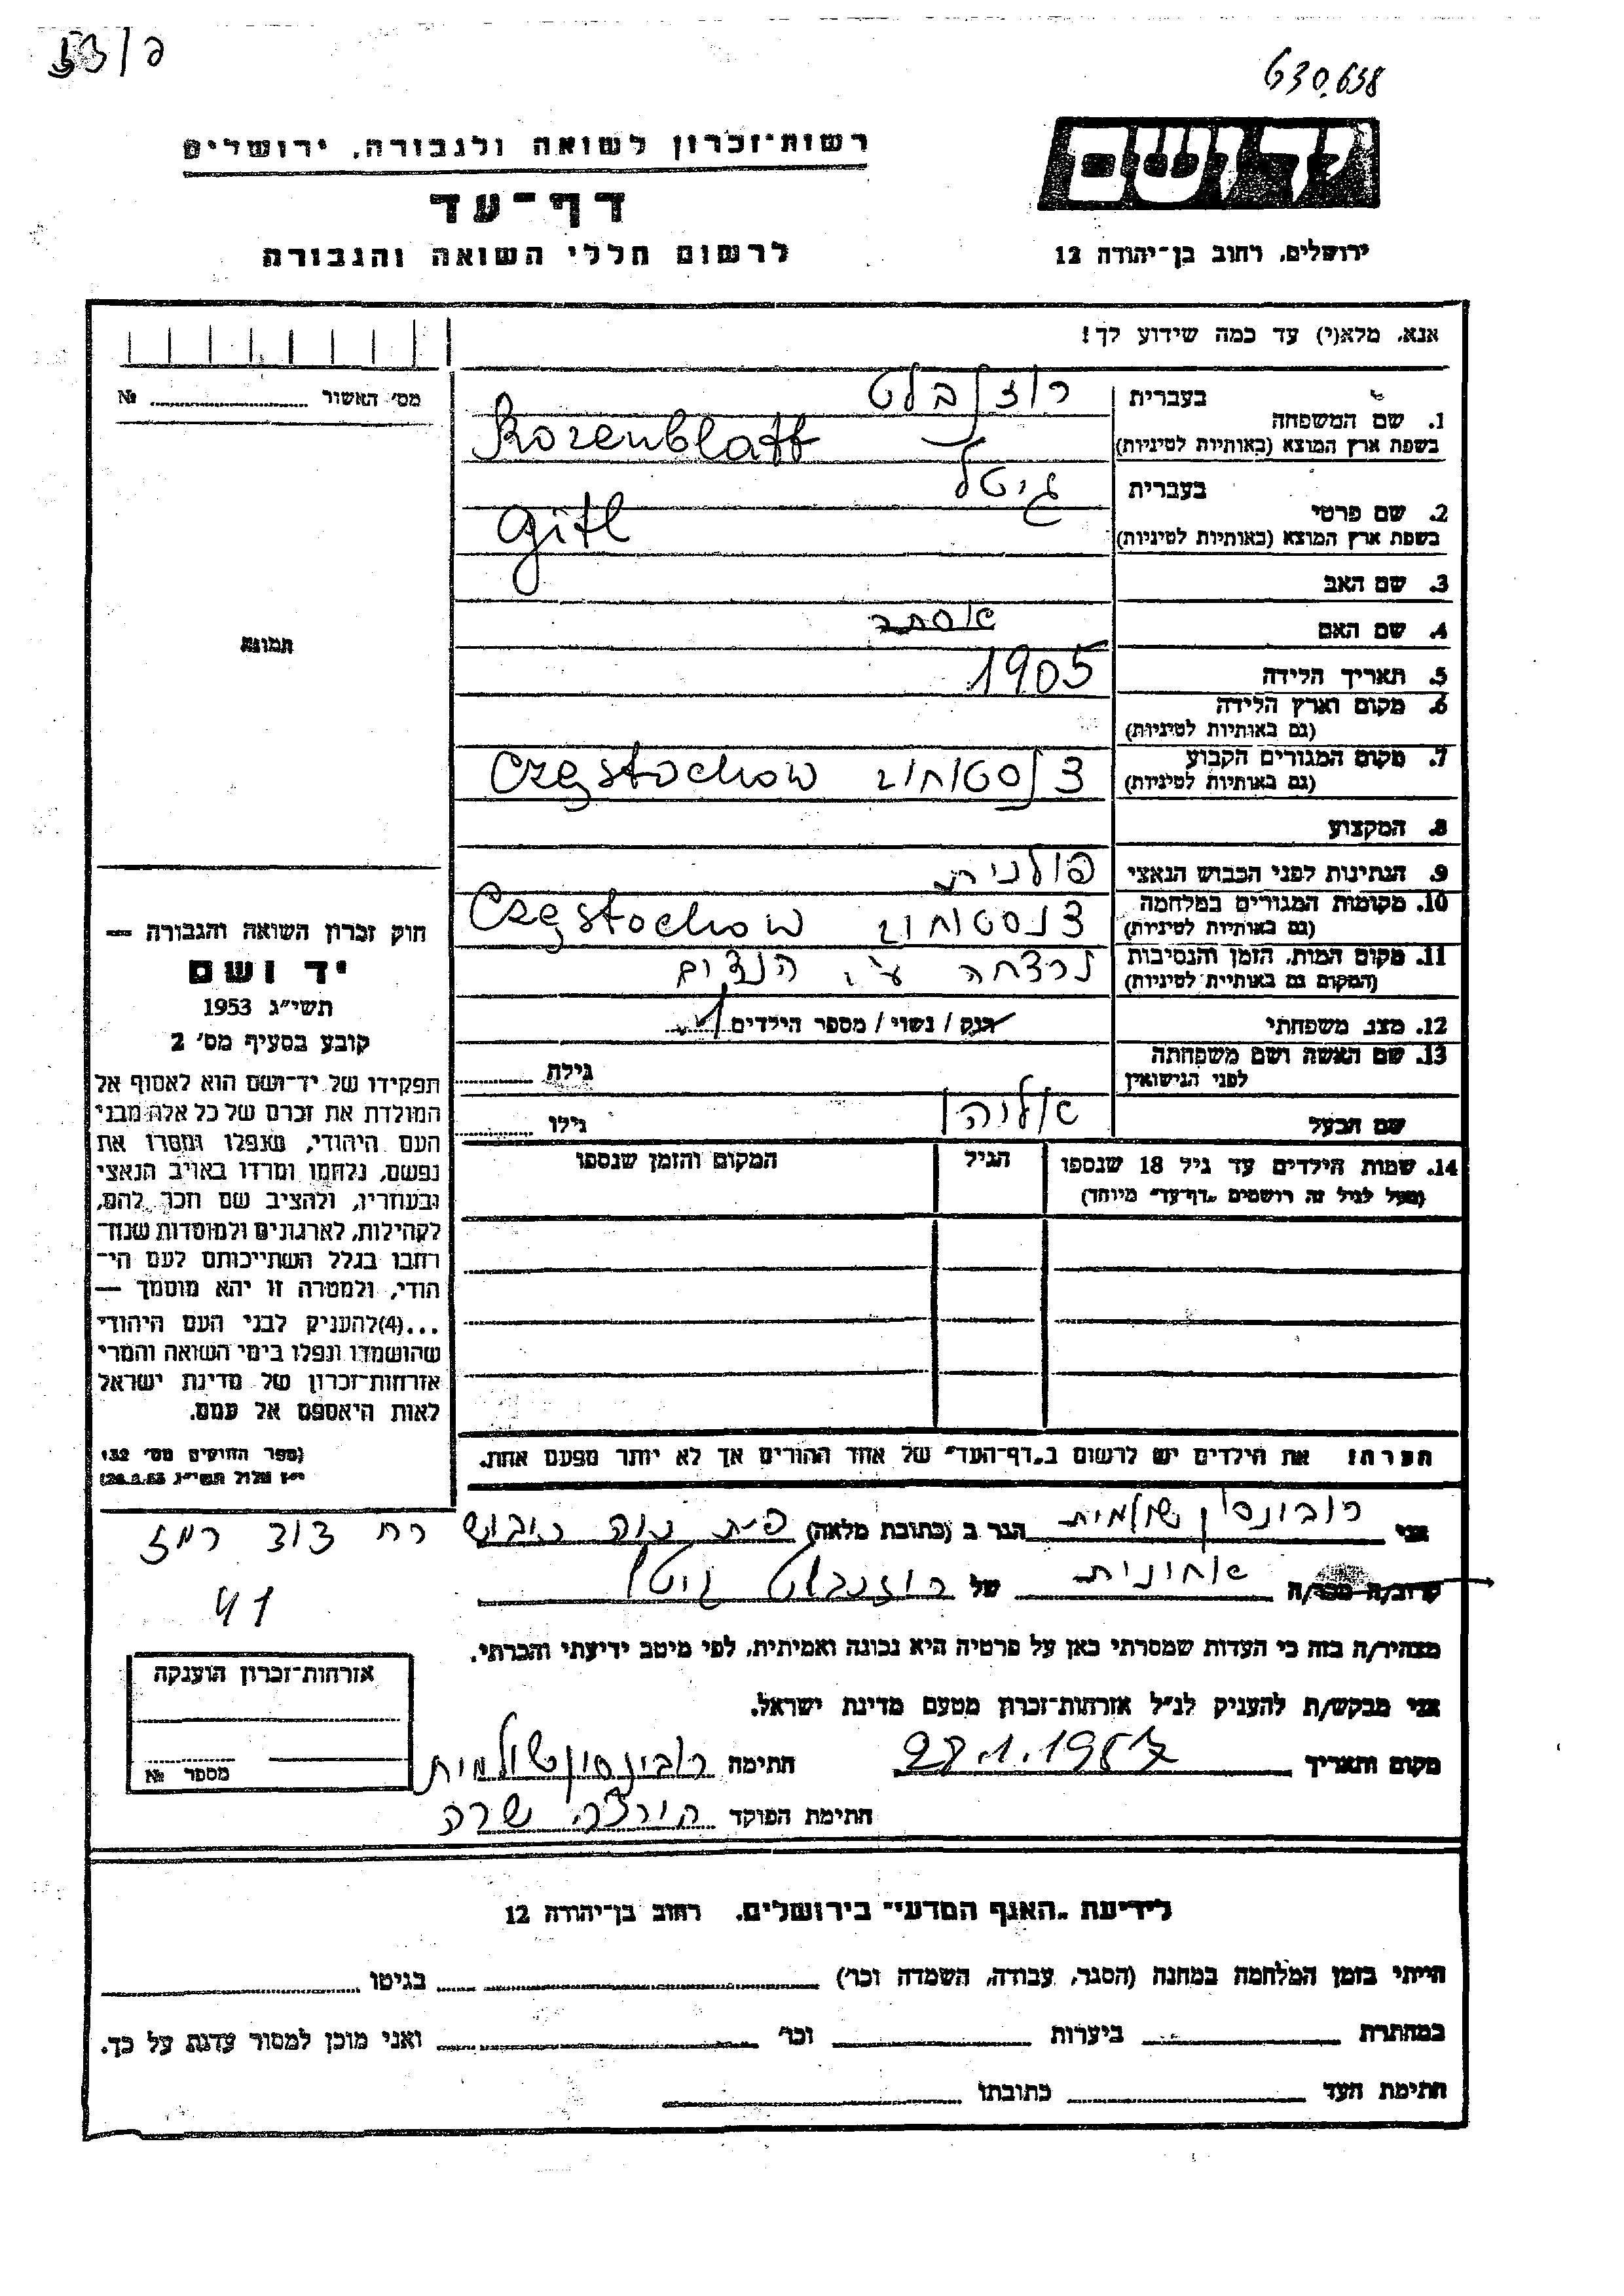 630.638
רשות־זכרון לשואה ולגבורה, ירושלים
דף־עד
לרשום חללי השואה והגבורה
יד ושם
ירושלים, רחוב בן־יהודה 12
אנא, מלא(י) עד כמה שידוע לך!
מס׳ האשור № 
1. שם המשפחה
בעברית רוזנבלט
בשפת ארץ המוצא (באותיות לטיניות) Rozenblatt
2. שם פרטי
בעברית גיטל
בשפת ארץ המוצא (באותיות לטיניות) Gitl
3. שם האב
4. שם האם אסתר
5. תאריך הלידה 1905
6. מקום וארץ הלידה
(גם באותיות לטיניות)
7. מקום המגורים הקבוע צ'נסטוחוב Częstochow
(גם באותיות לטיניות)
8. המקצוע
9. הנתינות לפני הכבוש הנאצי פולנית
10. מקומות המגורים במלחמה צ'נסטוחוב Częstochow
(גם באותיות לטיניות)
11. מקום המות, הזמן והנסיבות נרצחה ע"י הנצים
(המקום גם באותיות לטיניות)
12. מצב משפחתי רוק / נשוי / מספר הילדים
13. שם האשה ושם משפחתה
לפני הנישואין
גילה
שם הבעל אליהו
גילו
14. שמות הילדים עד גיל 18 שנספו
(מעל לגיל זה רושמים „דף־עד״ מיוחד)
הגיל
המקום והזמן שנספו
תמונה
חוק זכרון השואה והגבורה —
יד ושם
תשי״ג 1953
קובע בסעיף מס׳ 2
תפקידו של יד־ושם הוא לאסוף אל
המולדת את זכרם של כל אלה מבני
העם היהודי, שנפלו ומסרו את
נפשם, נלחמו ומרדו באויב הנאצי
ובעוזריו, ולהציב שם וזכר להם,
לקהילות, לארגונים ולמוסדות שנח־
רבו בגלל השתייכותם לעם הי־
הודי, ולמטרה זו יהא מוסמך —
...(4)להעניק לבני העם היהודי
שהושמדו ונפלו בימי השואה והמרי
אזרחות־זכרון של מדינת ישראל
לאות היאספם אל עמם.
(ספר החוקים מס׳ 132
הערה: את הילדים יש לרשום ב„דף־העד״ של אחד ההורים אך לא יותר מפעם אחת.
אני רובינסון שולמית הגר ב (כתובת מלאה) נוה רח דוד רמז
41
קרוב/ה מכר/ה אחינית של רוזנבלט גיטל
מצהיר/ה בזה כי העדות שמסרתי כאן על פרטיה היא נכונה ואמיתית, לפי מיטב ידיעתי והכרתי.
אני מבקש/ת להעניק לנ״ל אזרחות־זכרון מטעם מדינת ישראל.
מקום ותאריך חתימה רובינסון שולמית
חתימת הפוקד שרה
אזרחות־זכרון הוענקה
מספר №
לידיעת „האגף המדעי״ בירושלים, רחוב בן־יהודה 12
הייתי בזמן המלחמה במחנה (הסגר, עבודה, השמדה וכו׳) בגיטו
במחתרת ביערות וכו׳ ואני מוכן למסור עדות על כך.
חתימת העד כתובתו